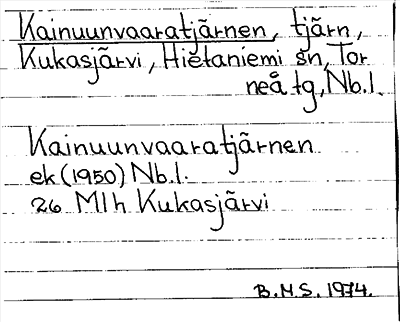 Kainuunvaaratjärnen, tjärn,
Kukasjärvi, Hietaniemi sn, Tor
neå tg, Nb.l.
Kainuunvaaratjärnen
ek (1950) Nb.l.
26 M1h Kukasjärvi
B.M.S. 1974.